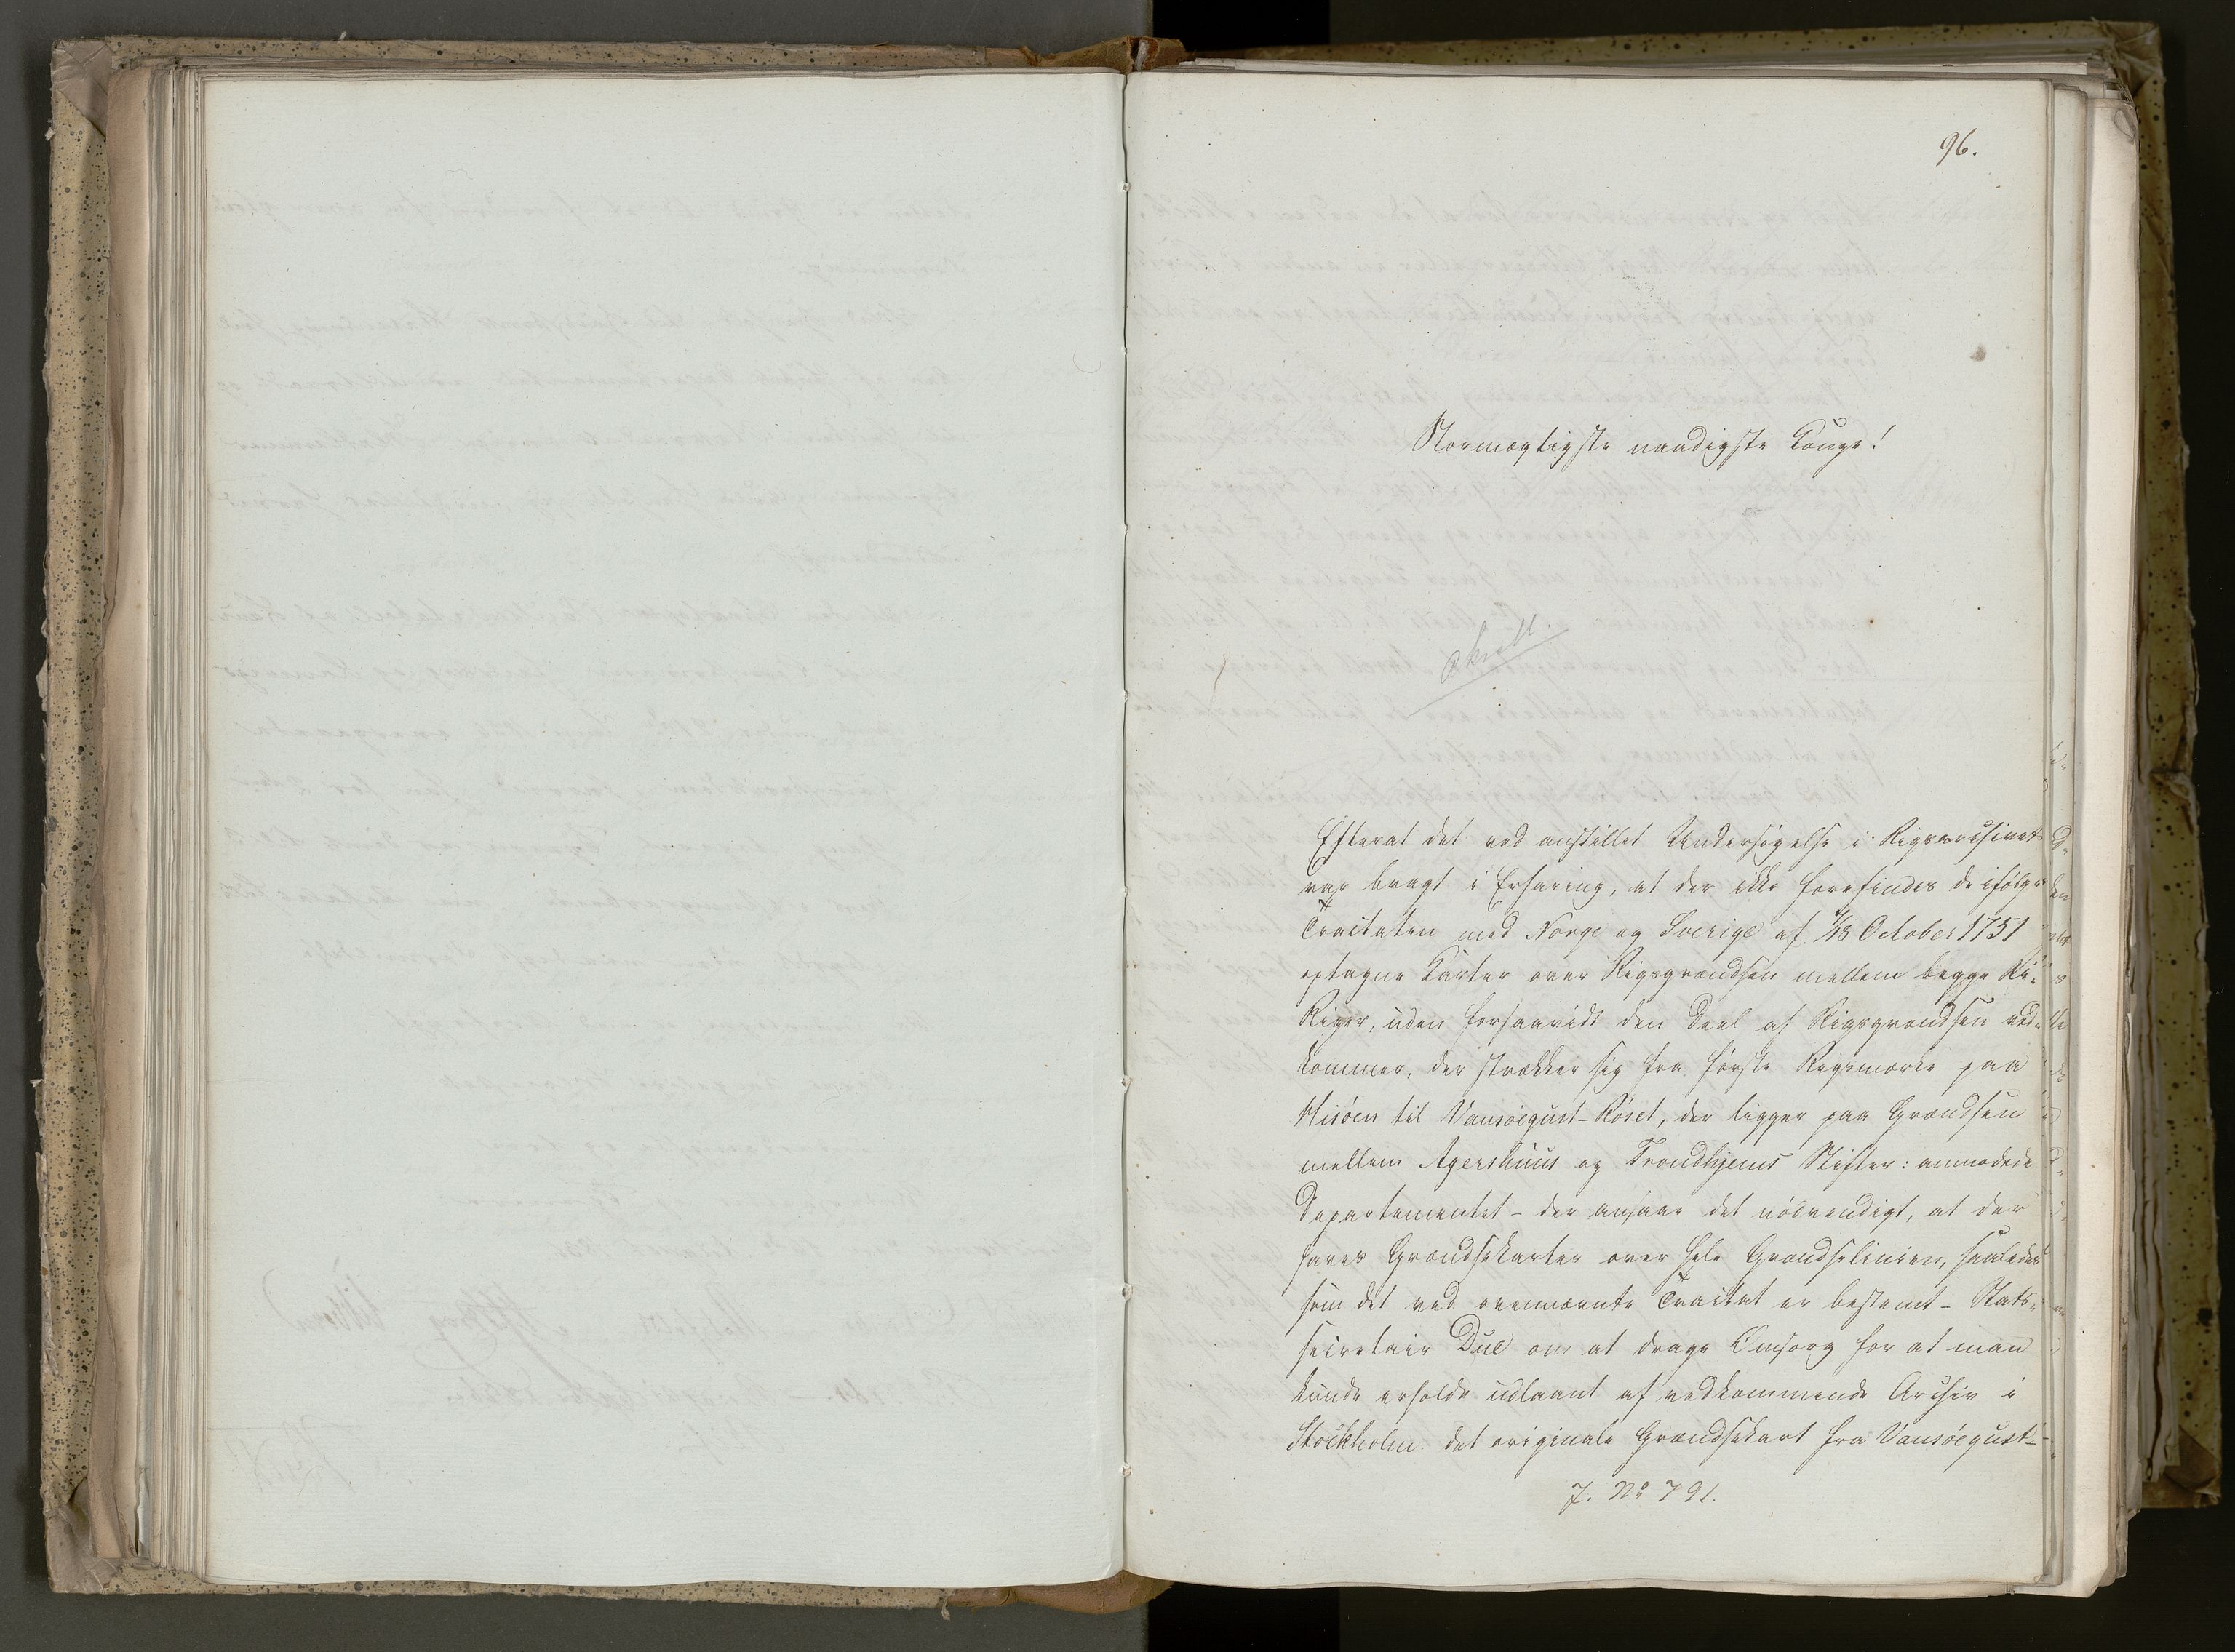 96.
Stormægtigste naadigste Konge!
Efterat det ved anstillet Undersøgelse i Rigsarchivet
var bragt i Erfaring, at der ikke forefindes de ifølge
Tractaten med Norge og Sverige af 2/18 October 1751
optagne Karter over Rigsgrændsen mellem begge Ri-
Riger, uden forsaavidt den Deel af Rigsgrændsen ved-
kommer, der strækker sig fra første Rigsmærke paa
Hisöen til Vonsöegust-Röset, der ligger paa Grændsen
mellem Agershuus og Trondhjems Stifter: anmodede
Departementet - der ansaae det nödvendigt, at der
haves Grændsekarter over hele Grændselinien, saaledes
som det ved ovennævnte Tractat er bestemt - Stats-
secretair Due om at drage Omsorg for at man
kunde erholde udlaant af vedkommende Archiv i
Stockholm det originale Grændsekart fra Vonsöegust-
J. No 791.